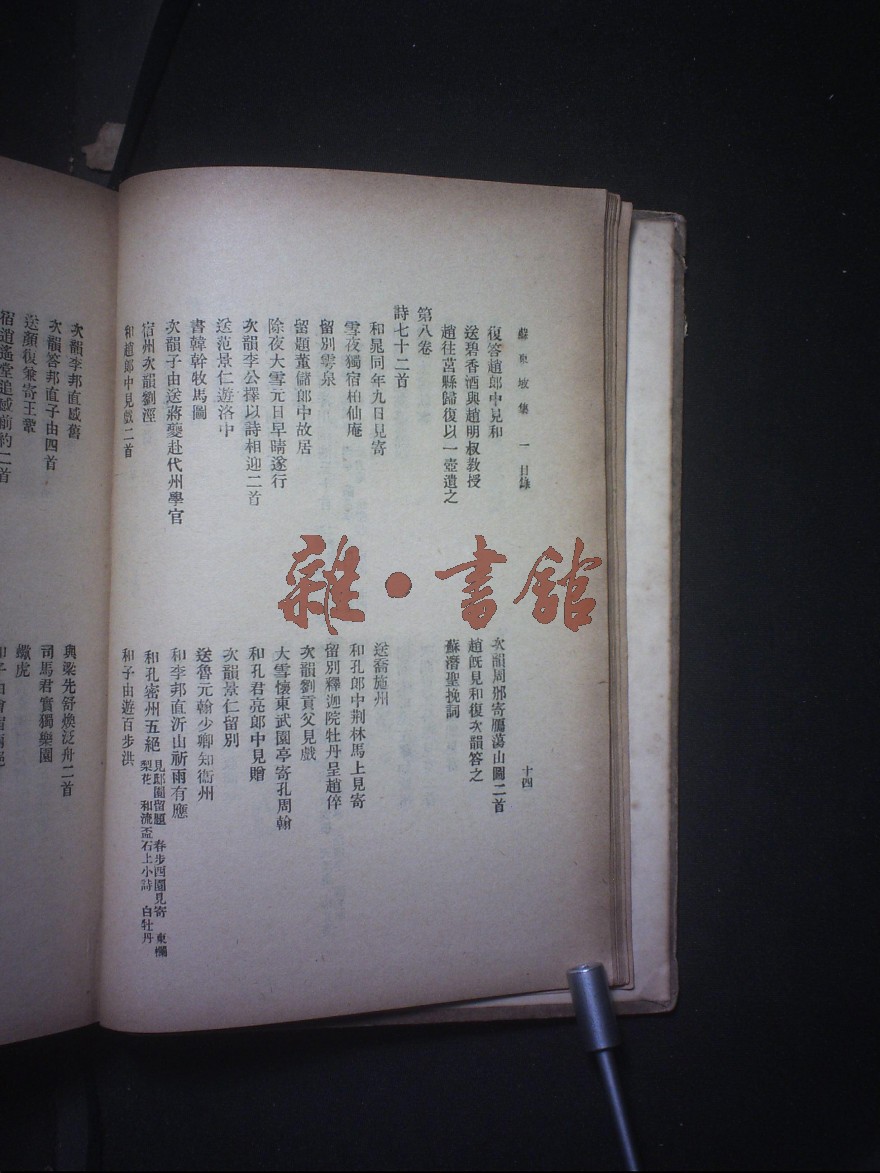 蘇東坡集 一 目錄
十四
復答趙郎中見和
次韻周邠寄鴈蕩山圖二首
送碧香酒與趙明叔教授
趙既見和復次韻答之
趙往莒縣歸復以一壺遺之
蘇潛聖挽詞
第八卷
詩七十二首
和晁同年九日見寄
送喬施州
雪夜獨宿柏仙庵
和孔郎中荆林馬上見寄
留別雩泉
留別釋迦院牡丹呈趙倅
留題董儲郎中故居
次韻劉貢父見戲
除夜大雪元日早晴遂行
大雪懷東武園亭寄孔周翰
次韻李公擇以詩相迎二首
和孔君亮郎中見贈
送范景仁遊洛中
次韻景仁留別
書韓幹牧馬圖
送魯元翰少卿知衞州
次韻子由送蔣夔赴代州學官
和李邦直沂山祈雨有應
宿州次韻劉涇
和孔密州五絕 見邸園留題 春步西園見寄 東欄梨花 和流盃石上小詩 白牡丹
和趙郎中見戲二首
和子由遊百步洪
次韻李邦直感舊
與梁先舒煥泛舟二首
次韻答邦直子由四首
司馬君實獨樂園
送顏復兼寄王鞏
蠍虎
宿逍遙堂追感前約二首
雜·書館